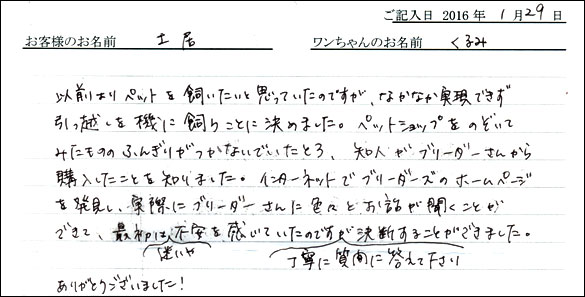 ご記入日 2016 年 1月 29日
お客様のお名前 土居 ワンちゃんのお名前 くるみ
以前よりペットを飼いたいと思っていたのですが、なかなか実現できず
引っ越しを機に飼うことに決めました。ペットショップをのぞいて
みたもののふんぎりがつかないでいたところ、知人がブリーダーさんから
購入したことを知りました。インターネットでブリーダーズのホームページ
を発見し、実際にブリーダーさんに色々とお話が聞くことが
できて、最初は不安を感いていたのですが決断することができました。
迷いや 丁寧に質問に答えて下さい
ありがとうございました！